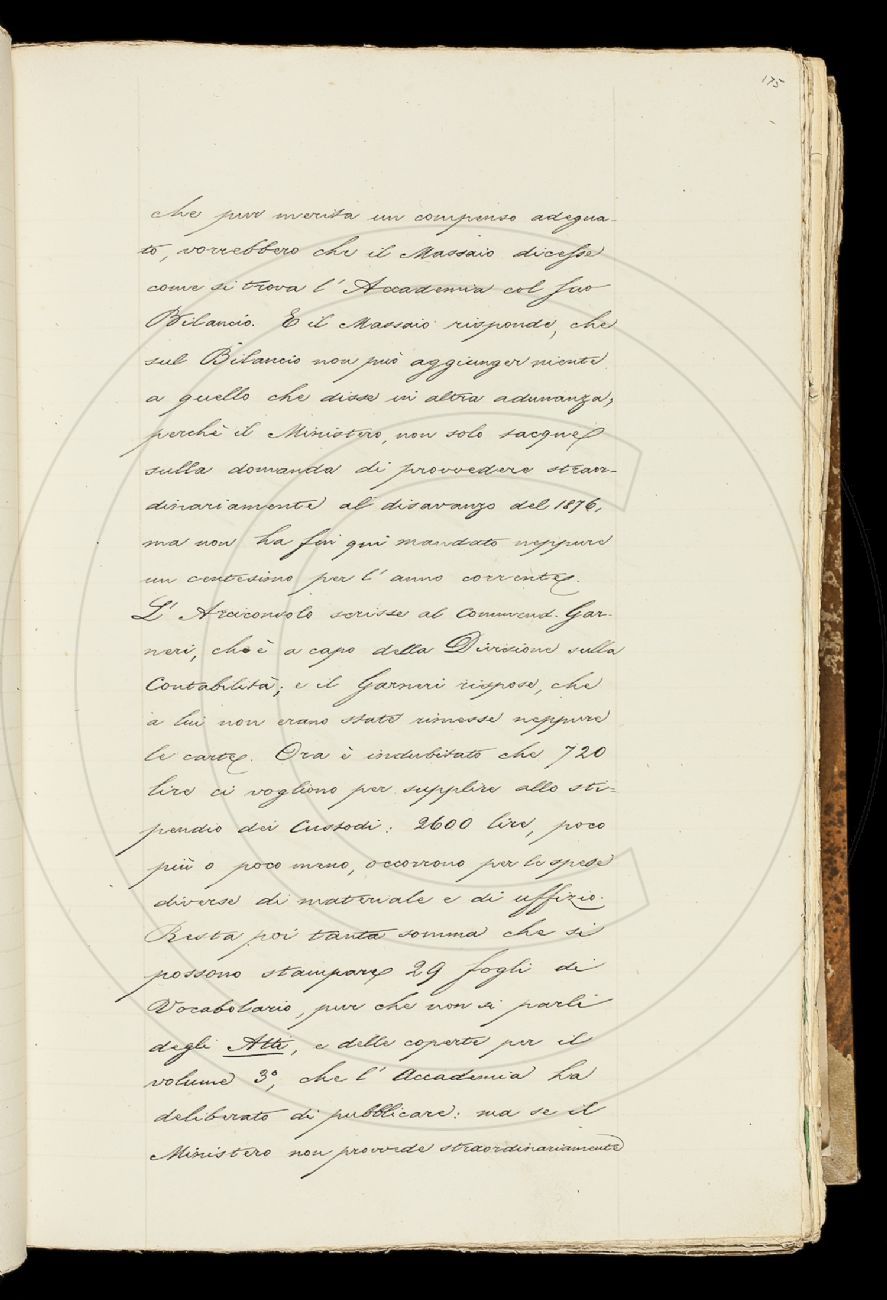 175
che pur merita un compenso adegua-
to, vorrebbero che il Massaio dicesse
come si trova l'Accademia col suo
Bilancio. E il Massaio risponde, che
sul Bilancio non può aggiunger niente
a quello che disse in altra adunanza;
perchè il Ministero, non solo tacque
sulla domanda di provvedere straor-
dinariamente al disavanzo del 1876,
ma non ha fin qui mandato neppure
un centesimo per l'anno corrente.
L'Arciconsolo scrisse al Commend. Gar-
neri, ch'è a capo della Divisione sulla
Contabilità; e il Garneri rispose, che
a lui non erano state rimesse neppure
le carte. Ora è indubitato che 720
lire ci vogliono per supplire allo sti-
pendio dei Custodi: 2600 lire, poco
più o poco meno, occorrono per le spese
diverse di materiale e di uffizio.
Resta poi tanta somma che si
possono stampare 29 fogli di
Vocabolario, pur che non si parli
degli Atti, e delle coperte per il
volume 3º, che l'Accademia ha
deliberato di pubblicare: ma se il
Ministero non provvede straordinariamente